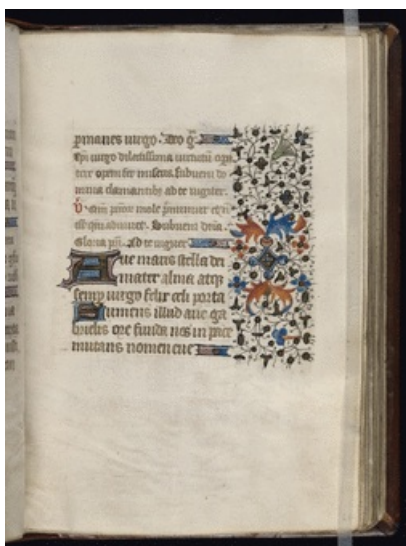 pmanes uirgo. Deo g̃.
xp̄i uirgo dilectissima uirtutū opa
trix opem fer miseris. subueni do
mina clamantibꝫ ad te iugiter.
mole p̄mimur et n̄
est qui adiuuet. Subueni dn̄a.
Gloria pr̄i. Ad te iugiter
Aue maris stella dei
mater alma atqꝫ
semp uirgo felix celi porta
Sumens illud aue ga
brielis ore funda nos in pace
mutans nomen eue